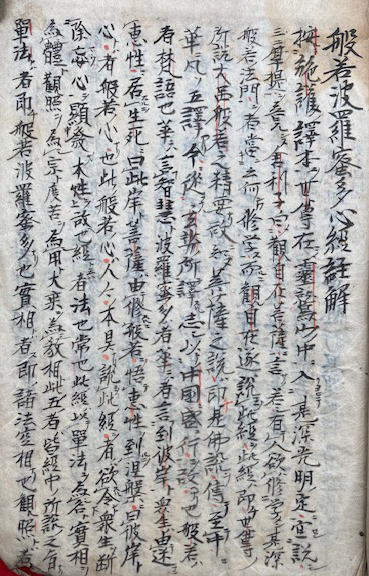 般若波羅蜜多心經註解
按施護譯本世尊在靈鷲山中入甚深光明定宣說
三摩提舍利子白觀自在菩薩言若有人欲修學甚深
般若法門者當云何修学而觀自在遂說此經此經即世尊
所說大部般若之精要故知菩薩之說即是佛說傳至中
華凡五譯今從玄奘所譯者以中國盛行故也般若
者梵語也華言智慧波羅蜜多者華言到彼岸衆生由迷
惠性居生死曰此岸菩薩由修般若悟惠性到涅槃曰彼岸
心者般若心也此般若心人人本具說此經者欲令衆生断
除妄心顯發本性故也經者法也常也此經以單法為名實相
為體觀照為宗度苦為用大乘為教相此五者皆經中所說之旨
單法者即般若波羅蜜多也實相者即諸法空相也觀照者